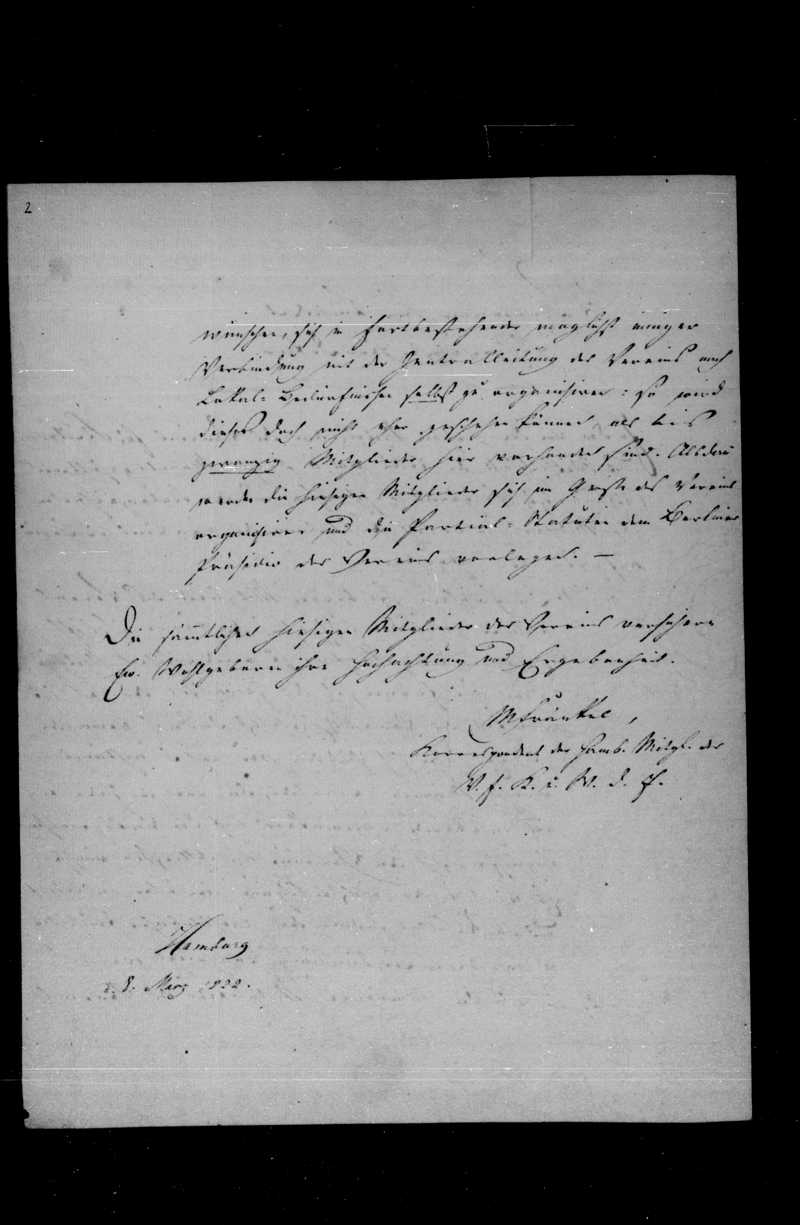 2
wünschen, sich in fortbestehender möglichst inniger
Verbindung mit der Zentralleitung des Vereins nach
Lokal-Bedürfnissen selbst zu organisiren: so wird
dieses doch nicht eher geschehen können als bis
zwanzig Mitglieder hier vorhanden sind. Alsdann
werden die hiesigen Mitglieder sich im Geiste des Vereins
organisiren und die Partial-Statuten dem Berliner
Präsidio des Vereins vorlegen. —
Die sämmtlichen hiesigen Mitglieder des Vereins versichern
Ew. Wohlgeboren ihre Hochachtung und Ergebenheit.
MFränkel,
Korrespondent der Hamb. Mitgl. des
V. f. K. u. W. d. J.
Hamburg
d. 8. März 1822.